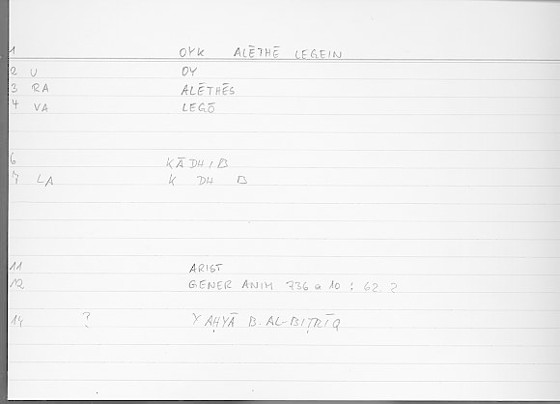 1 OYK ALĒTHĒ LEGEIN
2 U OY
3 RA ALĒTHĒS
4 VA LEGŌ
6 KĀDHIB
7 LA K DH B
11 ARIST
12 GENER ANIM 736 a 10 : 62 ?
14 ? YAḤYĀ B. AL-BIṬRĪQ